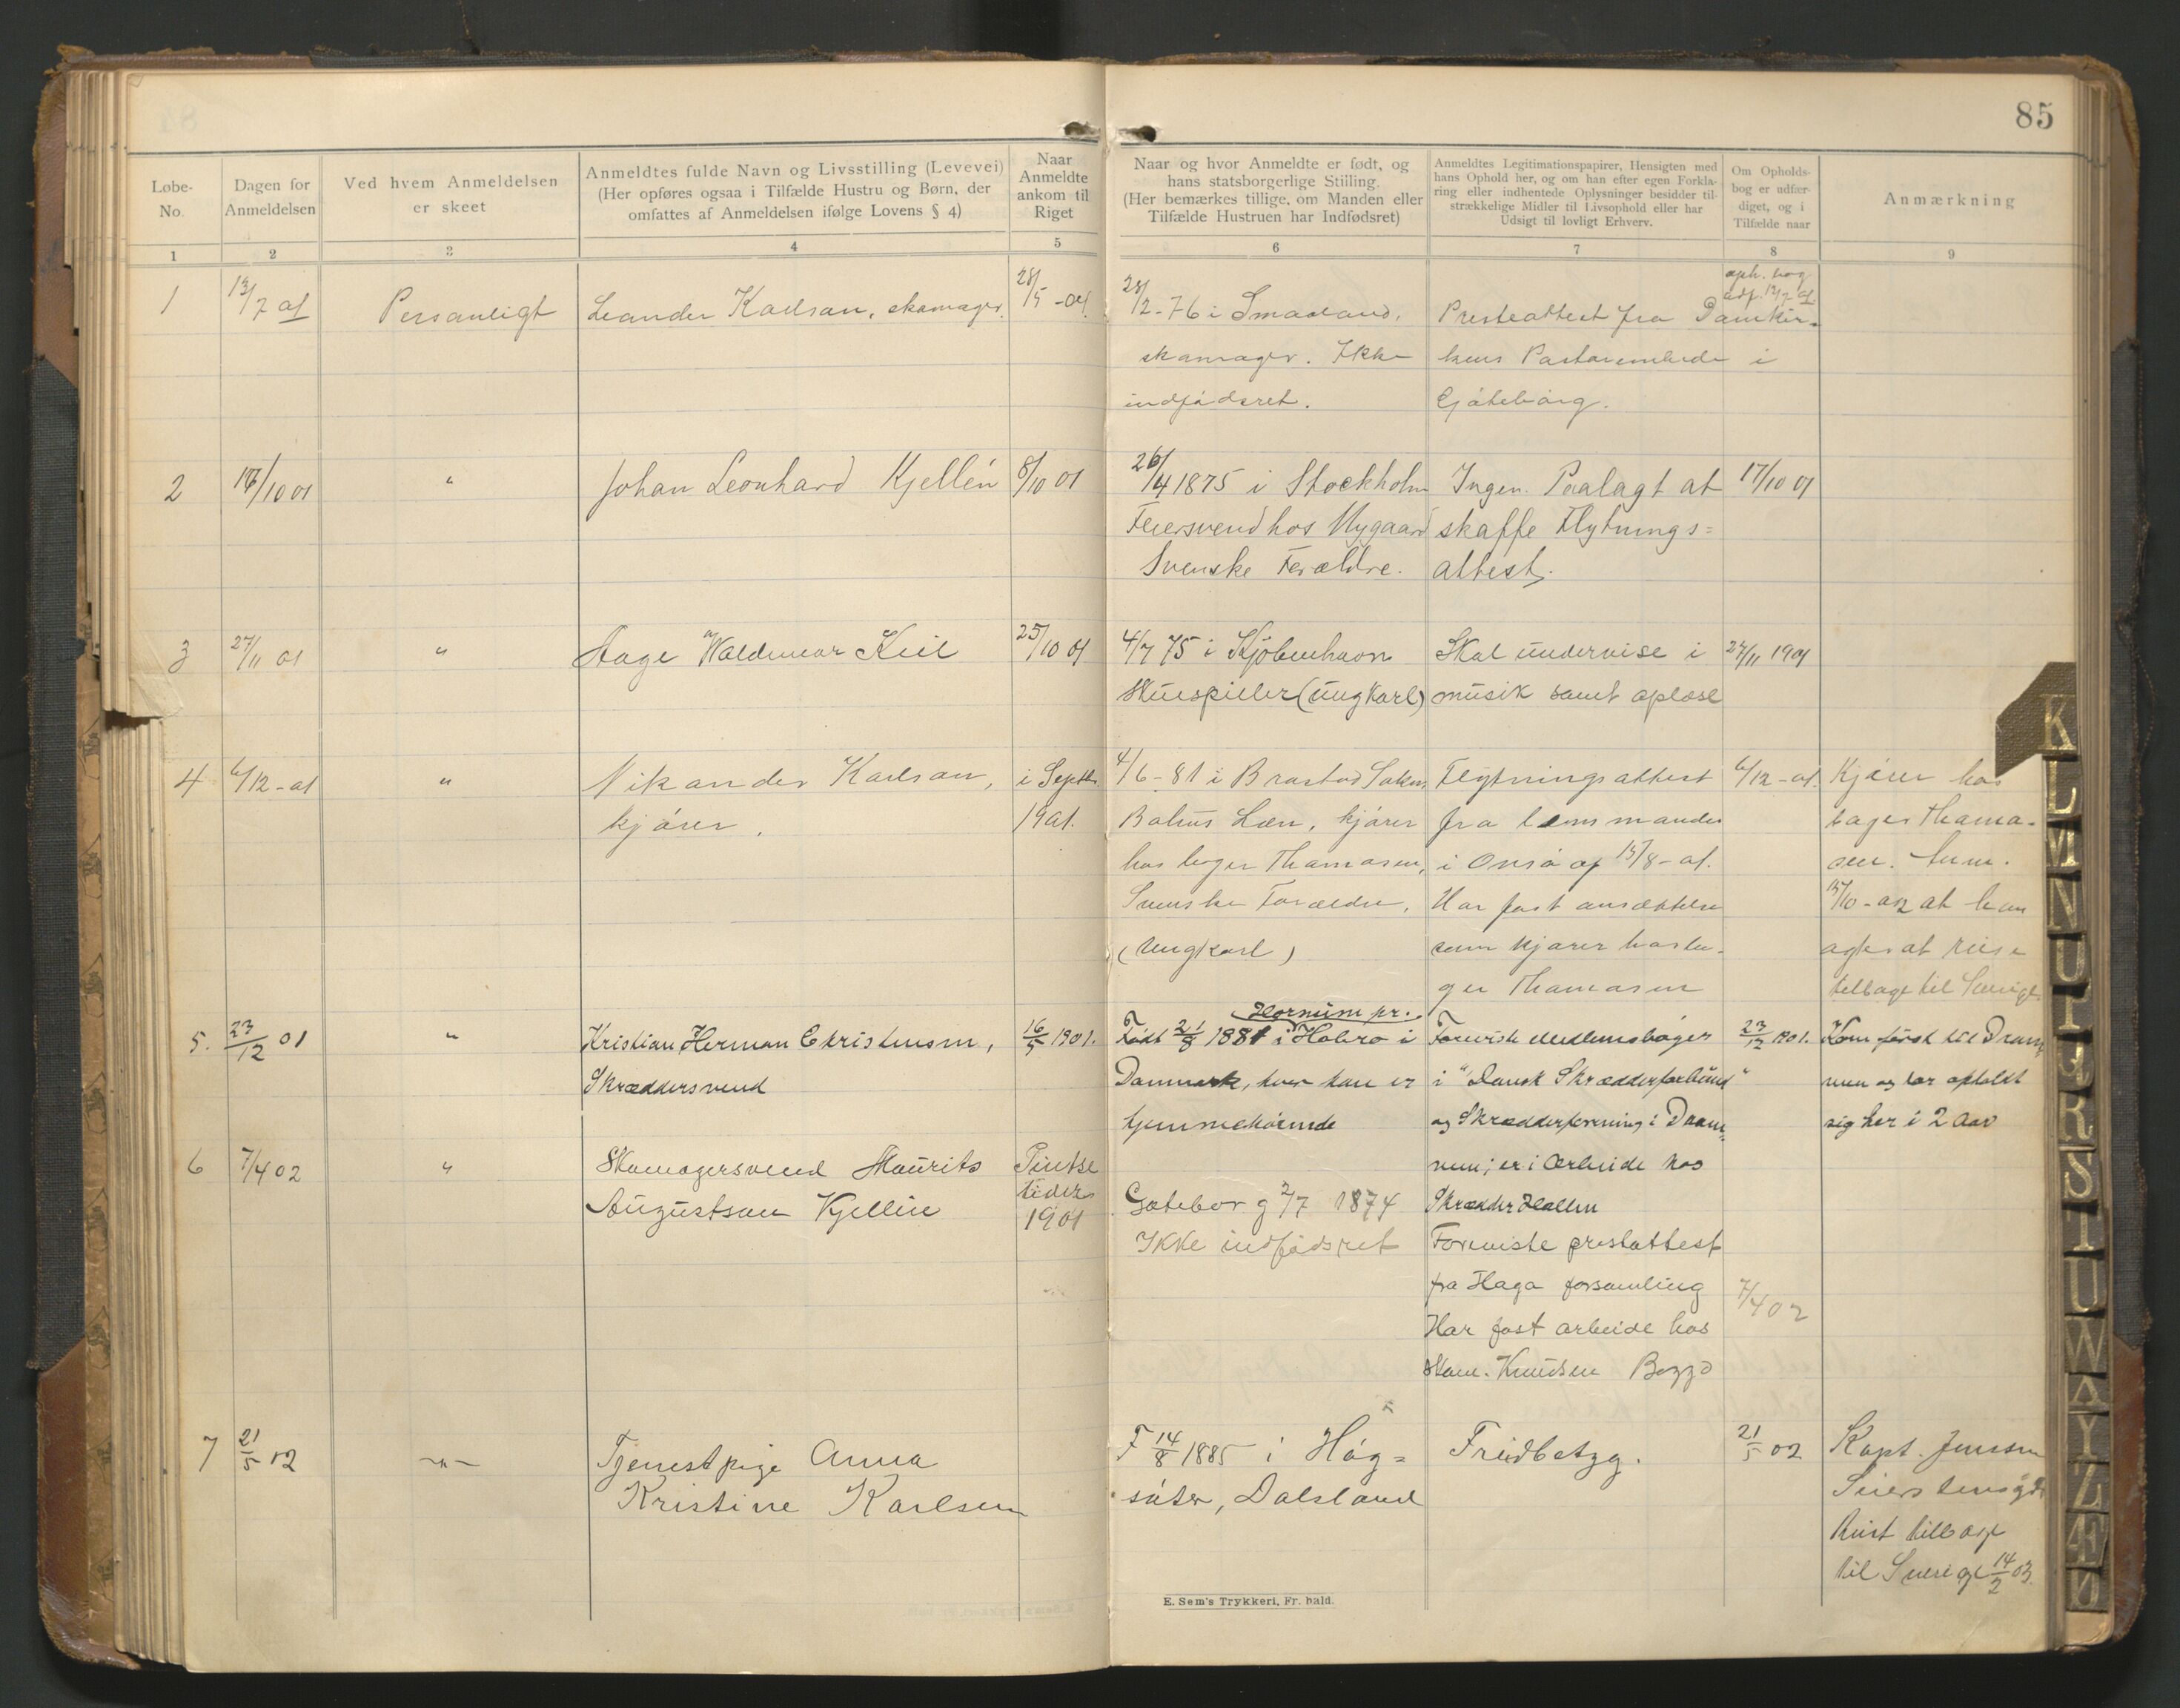 85
Løbe-
No.
Dagen for
Anmeldelsen
Ved hvem Anmeldelsen
er skeet
Anmeldtes fulde Navn og Livsstilling (Levevei)
(Her opføres ogsaa i Tilfælde Hustru og Børn, der
omfattes af Anmeldelsen ifølge Lovens § 4)
Naar
Anmeldte
ankom til
Riget
Naar og hvor Anmeldte er født, og
hans statsborgerlige Stilling.
(Her bemærkes tillige, om Manden eller
Tilfælde Hustruen har Indfødsret)
Anmeldtes Legitimationspapirer, Hensigten med
hans Ophold her, og om han efter egen Forkla-
ring eller indhentede Oplysninger besidder til-
strækkelige Midler til Livsophold eller har
Udsigt til lovligt Erhverv.
Om Opholds-
bog er udfær-
diget, og i
Tilfælde naar
Anmærkning
1 2 3 4 5 6 7 8 9
1
13/7 01
Personligt
Leander Karlson, skomager.
28/5-01
28/2-76 i Smaaland.
skomager. Ikke
indfødsret.
Presteattest fra Domkir-
kens Pastorembede i
Gøteborg.
oph. bog
udf. 13/7 01.
2
16/10 01
"
Johan Leonhard Kjellén
8/10 01
26/4 1875 i Stockholm
Feiersvend hos Nygaard
Svenske Forældre.
Ingen. Paalagt at
skaffe Flytnings=
attest.
17/10 01
3
27/11 01
"
Aage Waldemar Keil
25/10 01
4/7 75 i Kjøbenhavn
Skuespiller (ungkarl)
Skal undervise i
musik samt oplæse
27/11 1901
4
6/12-01
"
Nikander Karlson,
kjører.
i Septbr.
1901.
4/6-81 i Brastad Soken
Bohus Læn, kjører
hos bager Thomasen,
Svenske Forældre.
(Ungkarl)
Flytningsattest
fra lensmanden
i Onsø af 15/8-01.
Har fast ansættelse
som kjører hos ba-
ger Thomasen
6/12-01.
Kjører hos
bager Thoma-
sen.
15/10-02 at han
agter at reise
tilbage til Sverige.
5.
23/12 01
"
Kristian Herman Christensen,
Skræddersvend
16/5 1901.
Hornum pr.
Født 21/8 1881 i Hobro i
Danmark, hvor han er
hjemmehørende
Foreviste Medlemsbøger
i "Dansk Skrædderforbund"
og Skrædderforening i Dram-
men; er i Arbeide hos
Skrædder Hallen
23/12 1901.
Kom først til Dram-
men og har opholdt
sig her i 2 Aar
6
7/4 02
"
Skomagersvend Mauritz
Augustson Kjellin
Pintse
tider
1901
Gøteborg 2/7 1874
Ikke indfødsret
Foreviste prestattest
fra Haga forsamling
Har fast arbeide hos
Skom. Knudsen
7/4 02
7
21/5 02
-"-
Tjenestpige Anna
Kristine Karlsen
F 14/8 1885 i Høg=
säter, Dalsland
21/5 02
Kapt. Jenssen
Reist tilbage
til Sverige 14/2 03.
E. Sem's Trykkeri, Fr.hald.
K
L
M
N
O
P
R
S
T
U
W
A
Y
Z
Æ
Ø